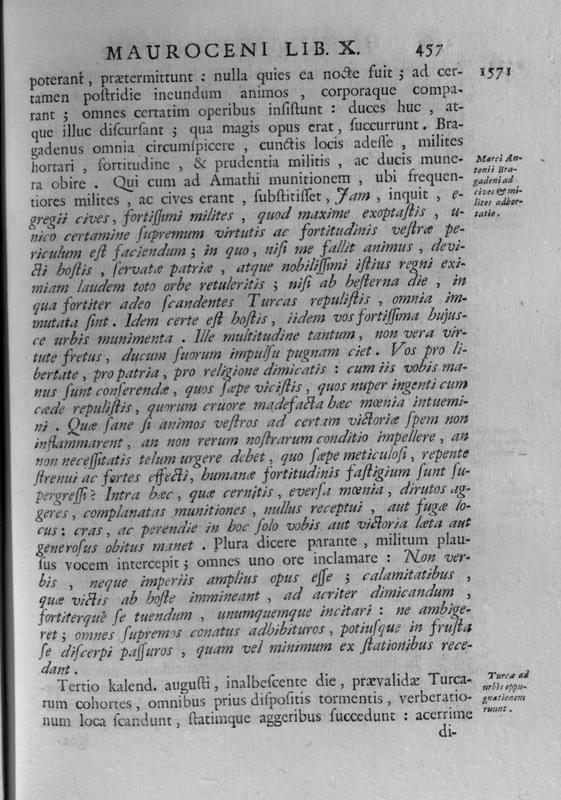 MAUROCENI LIB. X. 457
poterant, prætermittunt : nulla quies ea nocte fuit ; ad cer-
1571
tamen poſtridie ineundum animos, corporaque compa-
rant ; omnes certatim operibus inſiſtunt : duces huc, at-
que illuc diſcurſant ; qua magis opus erat, ſuccurrunt. Bra-
gadenus omnia circumſpicere, cunctis locis adeſſe, milites
hortari, fortitudine, & prudentia militis, ac ducis mune-
ra obire. Qui cum ad Amathi munitionem, ubi frequen-
tiores milites, ac cives erant, ſubſtitiſſet, Jam, inquit, e-
gregii cives, fortiſſimi milites, quod maxime exoptaſtis, u-
nico certamine ſupremum virtutis ac fortitudinis veſtræ pe-
riculum eſt faciendum ; in quo, niſi me fallit animus, devi-
cti hoſtis, ſervatæ patriæ, atque nobiliſſimi iſtius regni exi-
miam laudem toto orbe retuleritis ; niſi ab heſterna die, in
qua fortiter adeo ſcandentes Turcas repuliſtis, omnia im-
mutata ſint. Idem certe eſt hoſtis, iidem vos fortiſſima hujuſ-
ce urbis munimenta. Ille multitudine tantum, non vera vir-
tute fretus, ducum ſuorum impulſu pugnam ciet. Vos pro li-
bertate, pro patria, pro religione dimicatis : cum iis vobis ma-
nus ſunt conſerendæ, quos ſæpe viciſtis, quos nuper ingenti cum
cæde repuliſtis, quorum cruore madefacta hæc mœnia intuemi-
ni. Quæ ſane ſi animos veſtros ad certam victoriæ ſpem non
inflammarent, an non rerum noſtrarum conditio impellere, an
non neceſſitatis telum urgere debet, quo ſæpe meticuloſi, repente
ſtrenui ac fortes effecti, humanæ fortitudinis faſtigium ſunt ſu-
pergreſſi? Intra hæc, quæ cernitis, everſa mœnia, dirutos ag-
geres, complanatas munitiones, nullus receptui, aut fugæ lo-
cus : cras, ac perendie in hoc ſolo vobis aut victoria læta aut
generoſus obitus manet. Plura dicere parante, militum plau-
ſus vocem intercepit ; omnes uno ore inclamare : Non ver-
bis, neque imperiis amplius opus eſſe ; calamitatibus,
quæ victis ab hoſte immineant, ad acriter dimicandum,
fortiterquè ſe tuendum, unumquemque incitari : ne ambige-
ret ; omnes ſupremos conatus adhibituros, potiuſque in fruſta
ſe diſcerpi paſſuros, quam vel minimum ex ſtationibus rece-
dant.
Tertio kalend. auguſti, inalbeſcente die, prævalidæ Turca-
rum cohortes, omnibus prius diſpoſitis tormentis, verberatio-
num loca ſcandunt, ſtatimque aggeribus ſuccedunt : acerrime
di-
Marci An-
tonii Bra-
gadeni ad
cives & mi-
lites adhor-
tatio.
Turcæ ad
urbis oppu-
gnationem
ruunt.